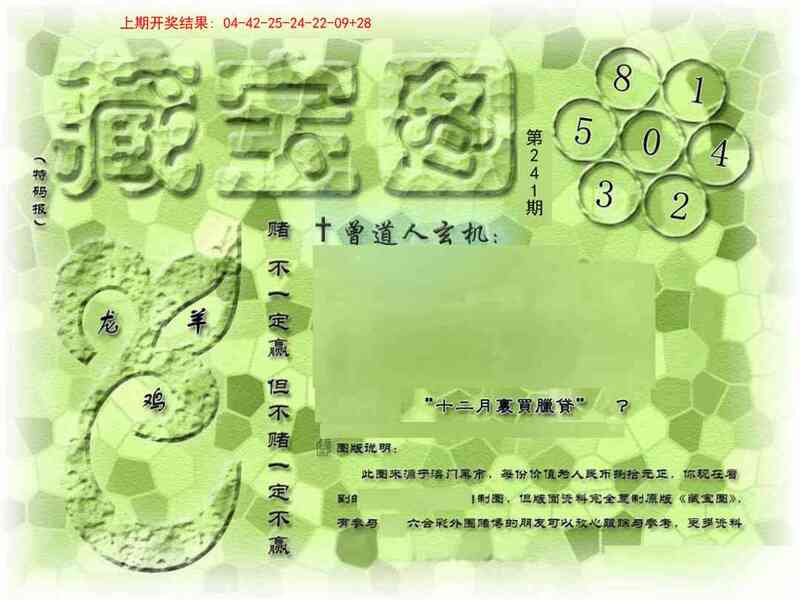 上期开奖结果: 04-42-25-24-22-09+28
藏宝图
(特码报)
第241期
8
1
5
0
4
3
2
龙
羊
鸡
赌不一定赢但不赌一定不赢
曾道人玄机:
“十二月裹買臘貸” ?
图版说明:
此图来源于澳门黑市，每份价值为人民币捌拾元正，你现在看
制图，但版面资料完全复制原版《藏宝图》，
有参与 六合彩外围赌博的朋友可以放心跟踪与参考，更多资料